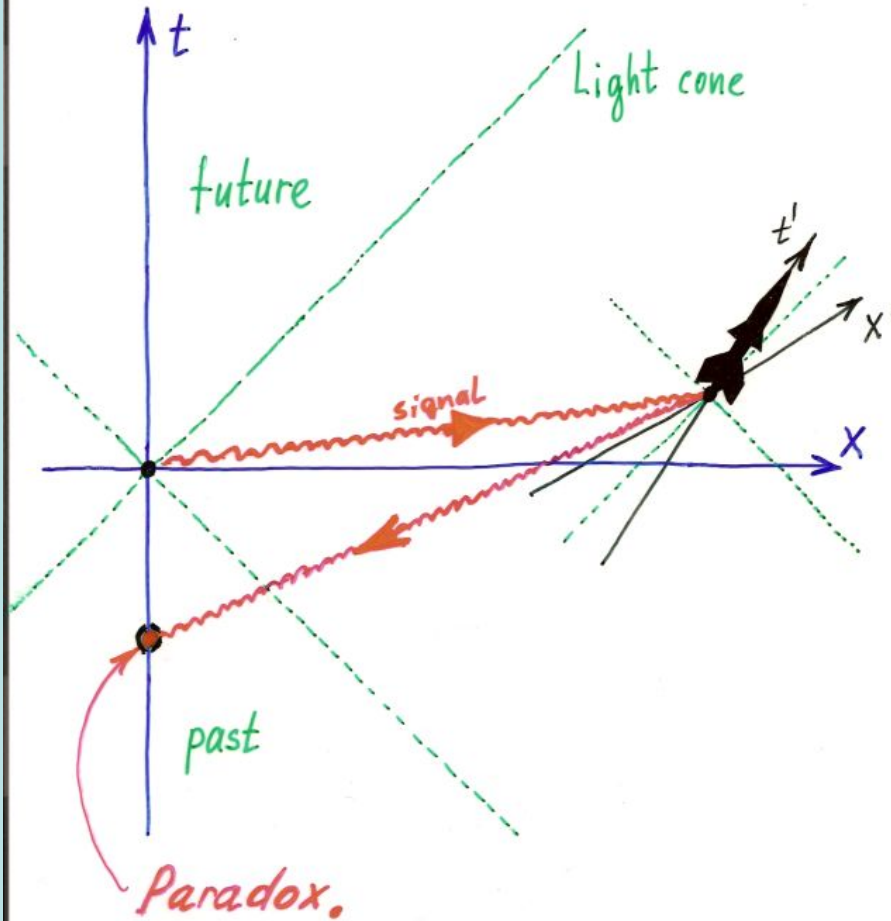 t
Light cone
future
t'
x
signal
X
past
Paradox.